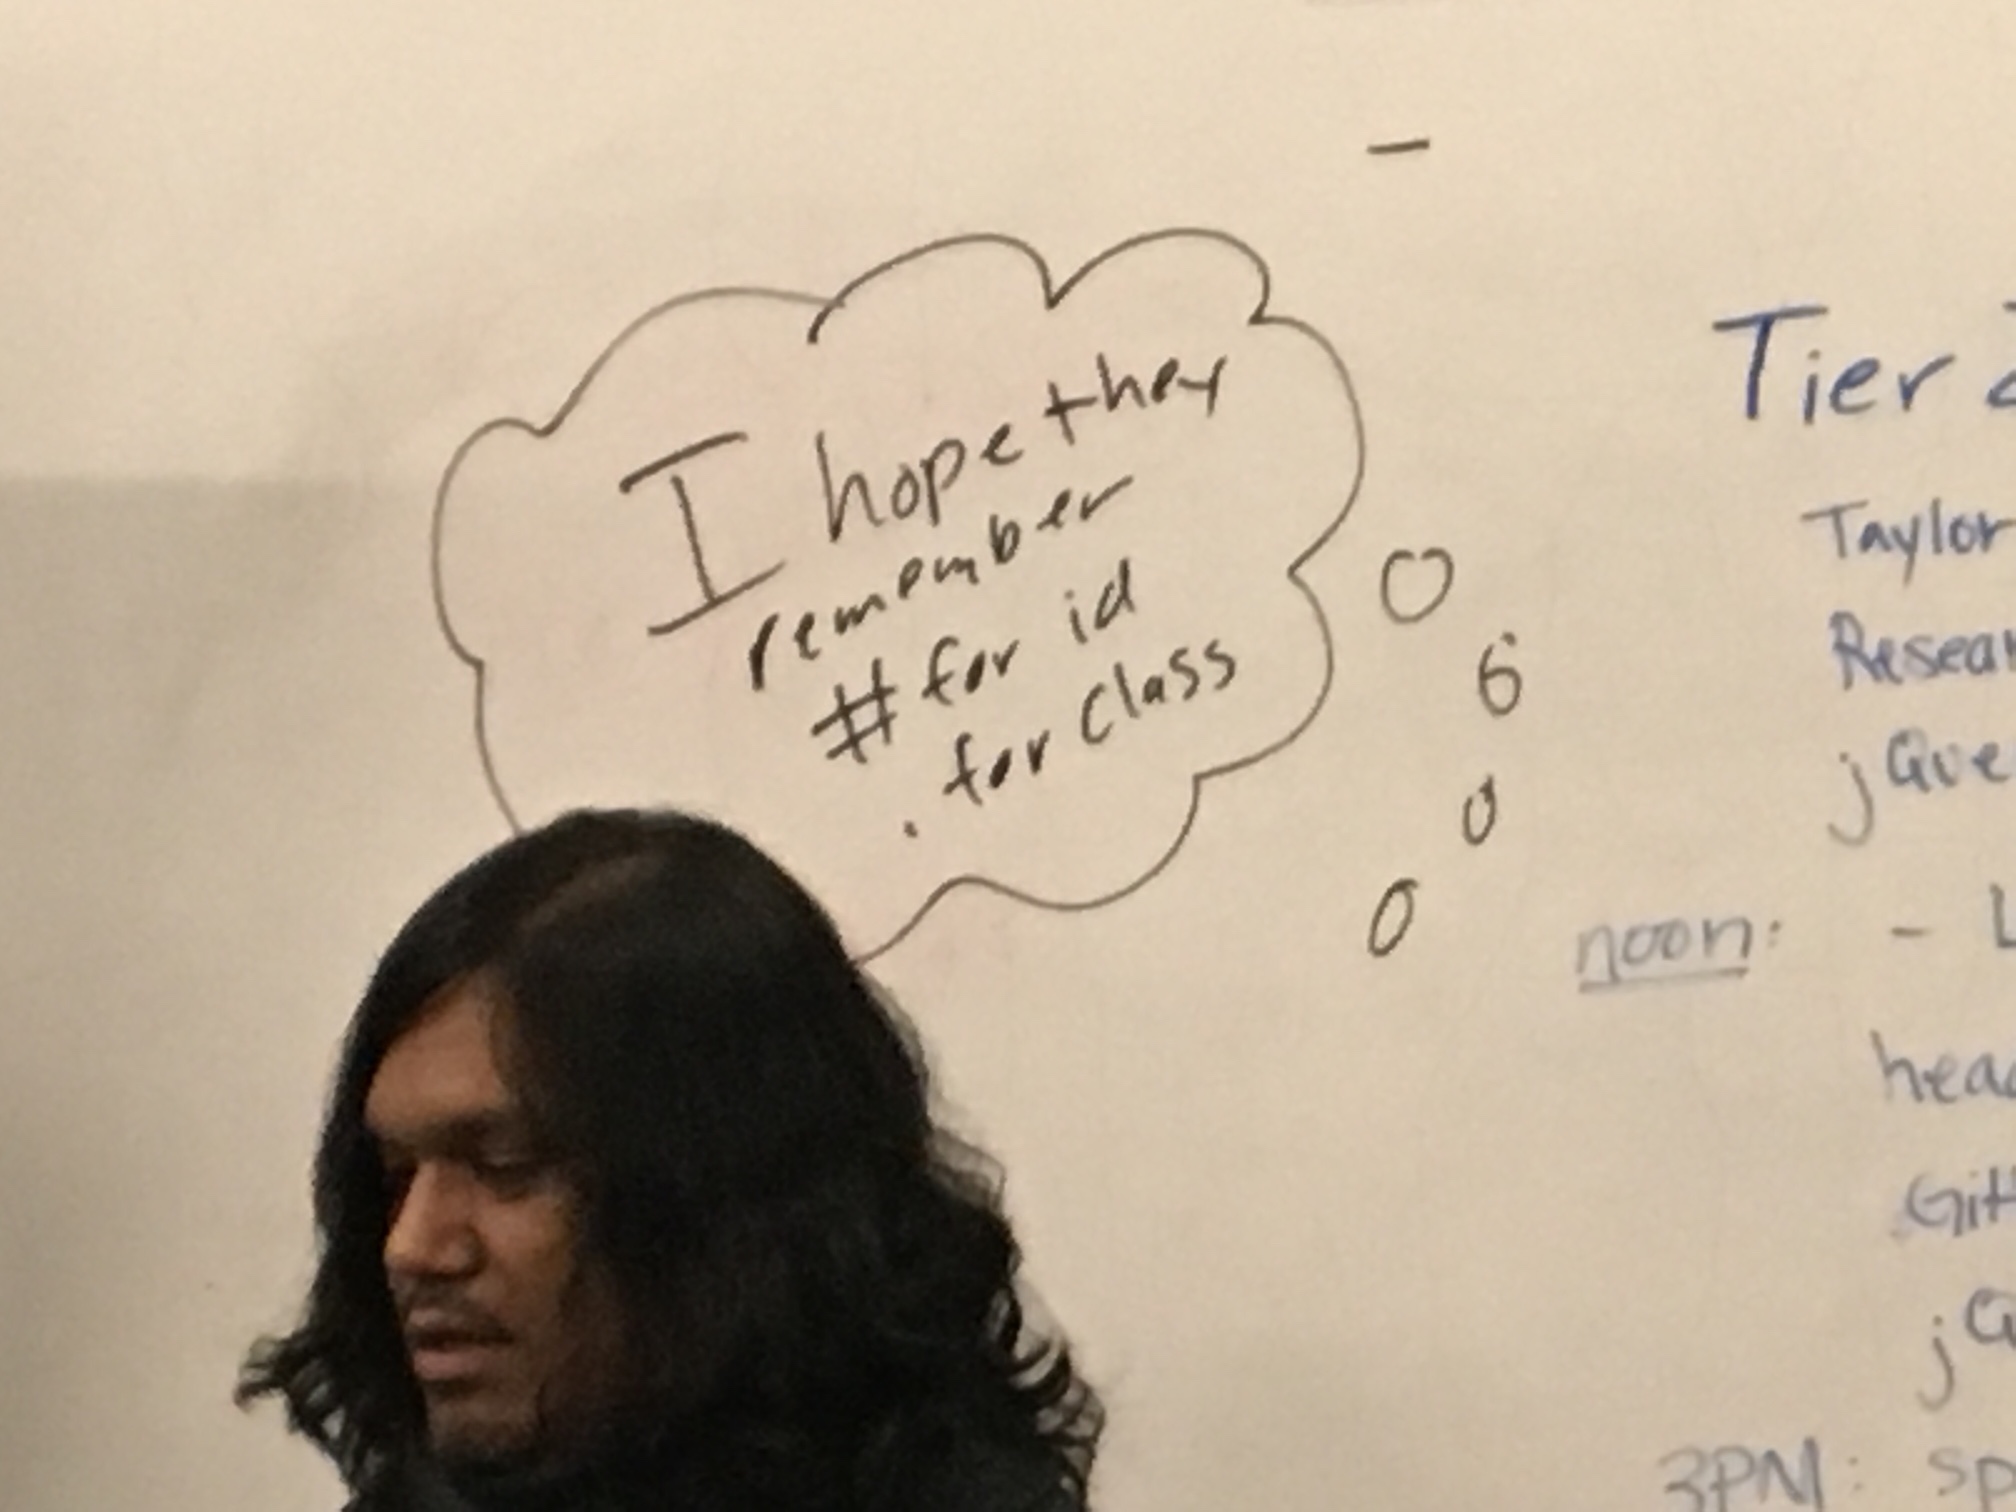 I hope they
remember
# for id
. for class
Tier
Taylor
jQue
noon: -
Git
jQ
3PM: sp